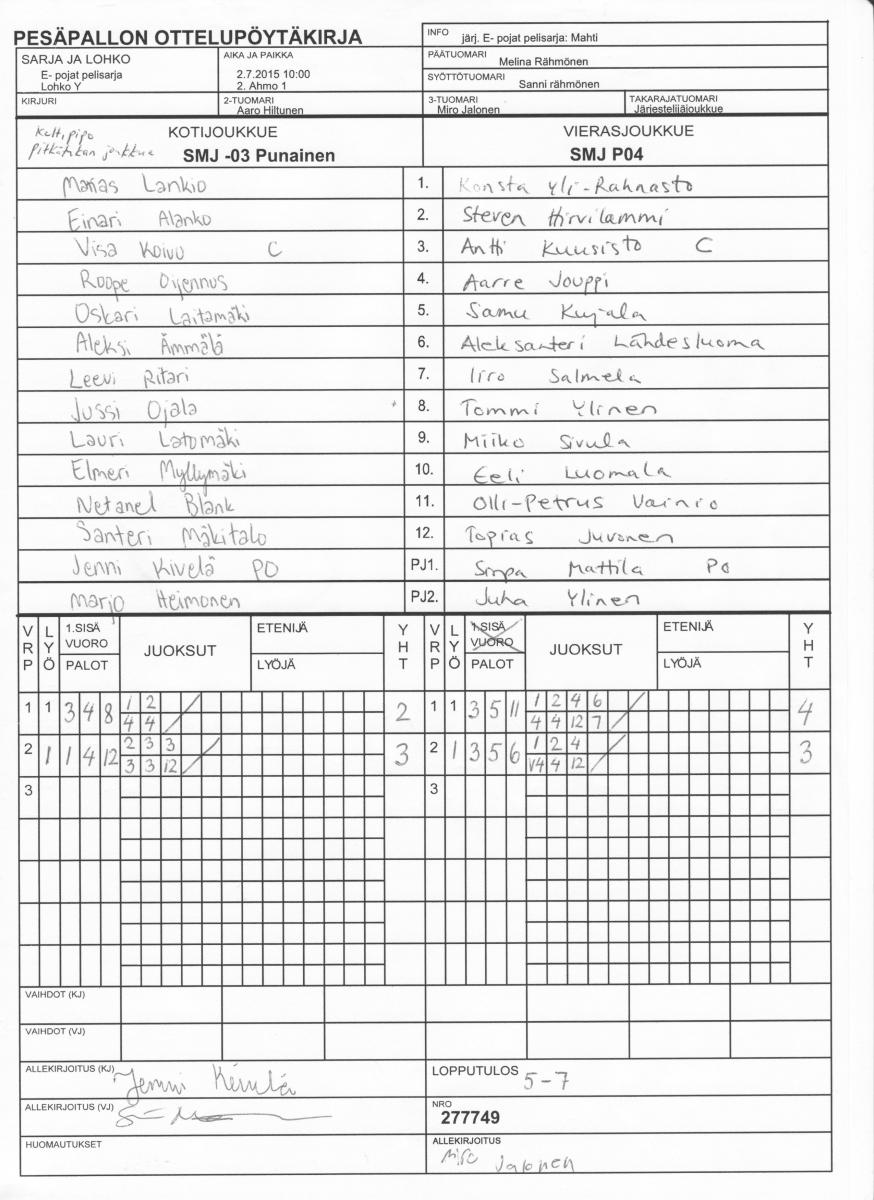 PESÄPALLON OTTELUPÖYTÄKIRJA
INFO järj. E- pojat pelisarja: Mahti
SARJA JA LOHKO
E- pojat pelisarja
Lohko Y
AIKA JA PAIKKA
2.7.2015 10:00
2. Ahmo 1
PÄÄTUOMARI
Melina Rähmönen
SYÖTTÖTUOMARI
Sanni rähmönen
KIRJURI
2-TUOMARI
Aaro Hiltunen
3-TUOMARI
Miro Jalonen
TAKARAJATUOMARI
Järjestelijäjoukkue
KOTIJOUKKUE
SMJ -03 Punainen
VIERASJOUKKUE
SMJ P04
Lankio 1. Konsta Yli-Rahnasto
Einari Alanko 2. Steven Hirvilammi
Visa Koivu C 3. Antti Kuusisto C
Roope Ojennus 4. Aarre Jouppi
Oskari Laitamäki 5. Samu Kujala
Aleksi Ämmälä 6. Aleksanteri Lähdesluoma
Leevi Ritari 7. Iiro Salmela
Jussi Ojala 8. Tommi Ylinen
Lauri Latomäki 9. Miiko Sivula
Elmeri Myllymäki 10. Eeli Luomala
Netanel Blank 11. Olli-Petrus Vainio
Santeri Mäkitalo 12. Topias Juvonen
Jenni Kivelä PO PJ1. Mattila PO
Marjo Heimonen PJ2. Juha Ylinen
VRP LYÖ 1.SISÄ VUORO PALOT JUOKSUT ETENIJÄ LYÖJÄ YHT VRP LYÖ 1.SISÄ VUORO PALOT JUOKSUT ETENIJÄ LYÖJÄ YHT
1 1 3 4 8 1 2 2 1 1 3 5 11 1 2 4 6 4
4 4 4 4 12 7
2 1 1 4 12 2 3 3 3 2 1 3 5 6 1 2 4 3
3 3 12 V4 4 12
3 3
VAIHDOT (KJ)
VAIHDOT (VJ)
ALLEKIRJOITUS (KJ) Jenni Kivelä
LOPPUTULOS 5-7
ALLEKIRJOITUS (VJ)
NRO
277749
HUOMAUTUKSET
ALLEKIRJOITUS
Miro Jalonen